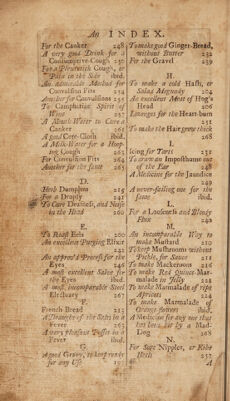 An INDEX.
For the Canker 248
A very good Drink for a
Consumptive Cough 250
For a Pleuretick Cough, or
Pain in the Side ibid.
An admirable Method for
Convulsion Fits 254
Another for Convulsions 255
To Camphorise Spirit of
Wine 257
A Mouth Water to Cure a
Canker 261
A good Cere-Cloth ibid.
A Milk-Water for a Hoop-
ing Cough 263
For Convulsion Fits 264
Another for the same 265
D.
Herb Dumplins 215
For a Dropsy 241
To Cure Deafness, and Noise
in the Head 260
E.
To Roast Eels 200
An excellent Purging Elect.
242
An approv'd Process for the
Eyes 245
A most excellent Salve for
the Eyes ibid.
A most incomparable Steel
Electuary 267
F.
French Bread 215
A Draught of the Salts in a
Fever 263
A very pleasant Posset in a
Fever ibid.
G.
A good Gravy, to keep ready
for any Use 195
To make good Ginger-Bread,
without Butter 232
For the Gravel 239
H.
To make a cold Hash, or
Salad Magundy 204
An excellent Meat of Hog's
Head 206
Lozenges for the Heart-burn
251
To make the Hair grow thick
268
I.
Icing for Tarts 231
To draw an Imposthume out
of the Ear 248
A Medicine for the Jaundice
249
A never-failing one for the
same ibid.
L.
For a Looseness and Bloody
Flux 240
M.
An incomparable Way to
make Mustard 210
To keep Mushrooms without
Pickle, for Sauce 211
To make Mackeroons 216
To make Red Quince-Mar-
malade in Jelly 222
To make Marmalade of ripe
Apricots 224
To make Marmalade of
Orange-flowers ibid.
A Medicine for any one that
has been bit by a Mad-
Dog 268
N.
For Sore Nipples, or Kibe
Heels 257
A